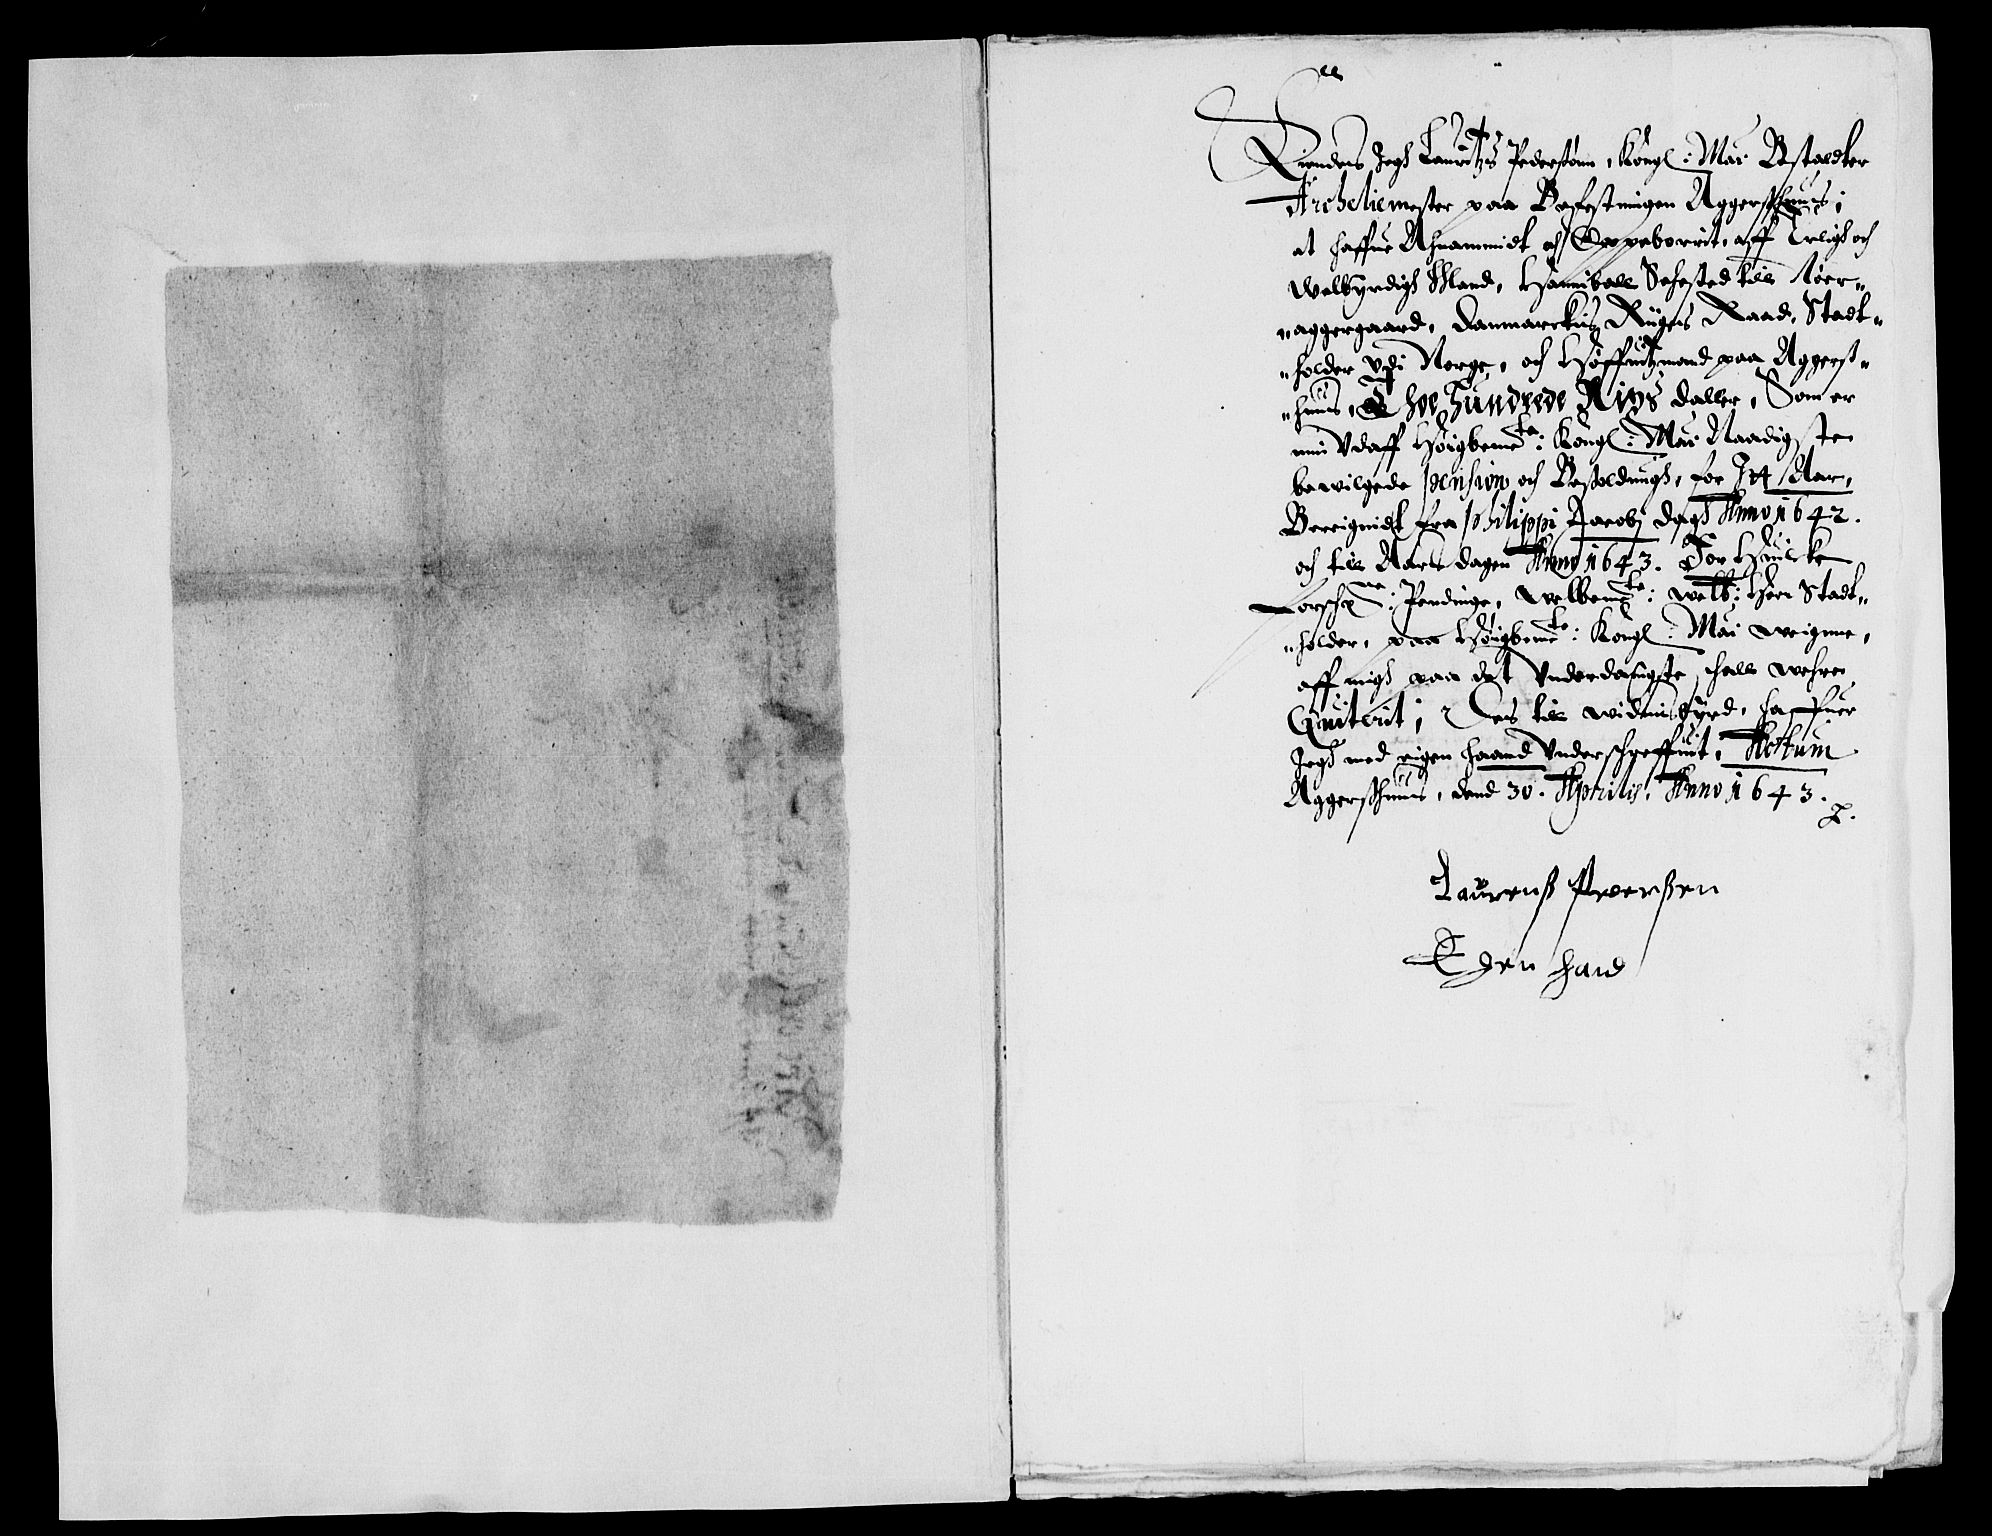 Kiendes Jegh Lauritzs Pederßønn, Kongl: May: Bestaldter
Archeliemester paa Befestningen Aggerßhuus;
at haffue Ahnammidt och Oppeborrit, aff Erligh och
Welbyrdigh Mand, Hanniball Sehested till Nøer„
„aggergaard, Danmarckis Rigens Raad, Stadt„
„holder vdi Norge, och Høffuitzmand paa Aggerß„
„huus, Thoe Hundrede Rixs daller, Som er
min Vdaff Høigbemte: Kongl: May: Naadigste
bewilgede Pension och Besoldningh, for Jtt Aar,
Berignidt fra Philippi Jacobi dagh Anno 1642.
och till Aars dagen Anno 1643. For Huilcke
forschne: Pendinge, Welbemte: Welb: Herr Stadt„
„holder, paa Høigbemte: Kongl: May: weigne,
aff migh paa det Vnderdanigste, schall wehre
Quiterit; Dis till widnisbyrd, haffuer
Jegh med eigen haand Vnderschreffuit, Actum
Aggerßhuus, dend 30. Aprilis, Anno 1643.
Laurenß Pedersen
Egen hand